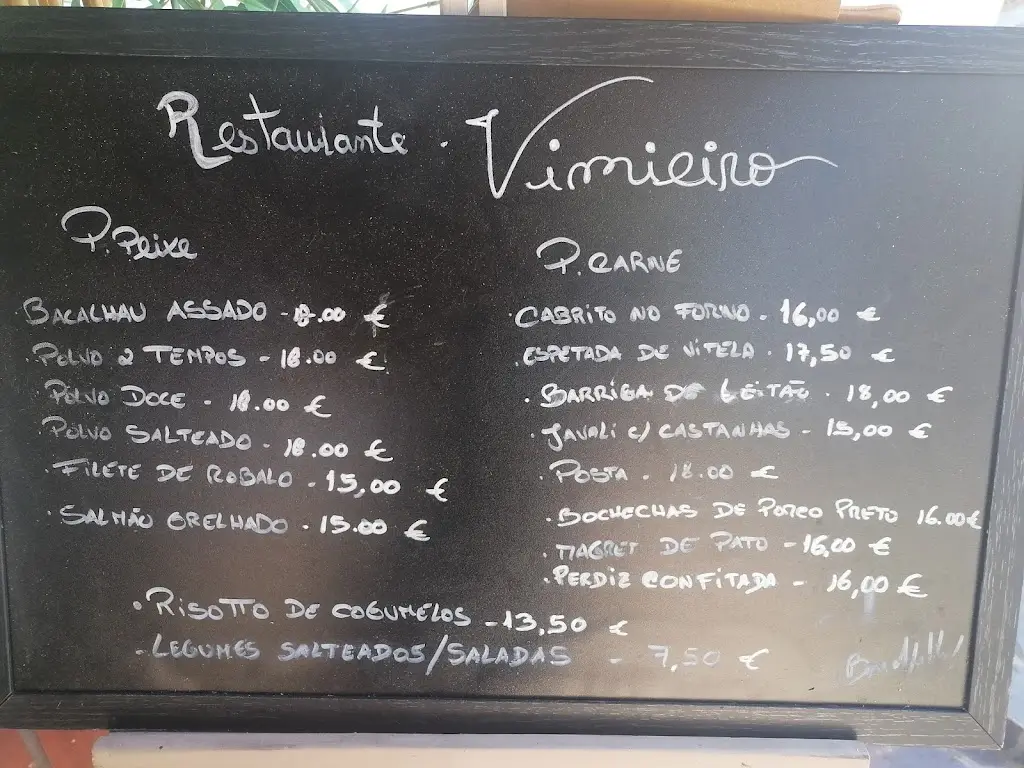 Restaurante . Vimieiro
P. Peixe
BACALHAU ASSADO - 18.00 €
. POLVO 2 TEMPOS - 18.00 €
. POLVO DOCE - 18.00 €
. POLVO SALTEADO - 18.00 €
. FILETE DE ROBALO - 15,00 €
. SALMÃO GRELHADO - 15.00 €
P. CARNE
. CABRITO NO FORNO - 16,00 €
. ESPETADA DE VITELA . 17,50 €
. BARRIGA DE LEITÃO . 18,00 €
. JAVALI C/ CASTANHAS - 15,00 €
. POSTA . 18.00 €
. BOCHECHAS DE PORCO PRETO 16.00€
. MAGRET DE PATO - 16,00 €
. PERDIZ CONFITADA - 16,00 €
. RISOTTO DE COGUMELOS - 13,50 €
- LEGUMES SALTEADOS/SALADAS - 7,50 €